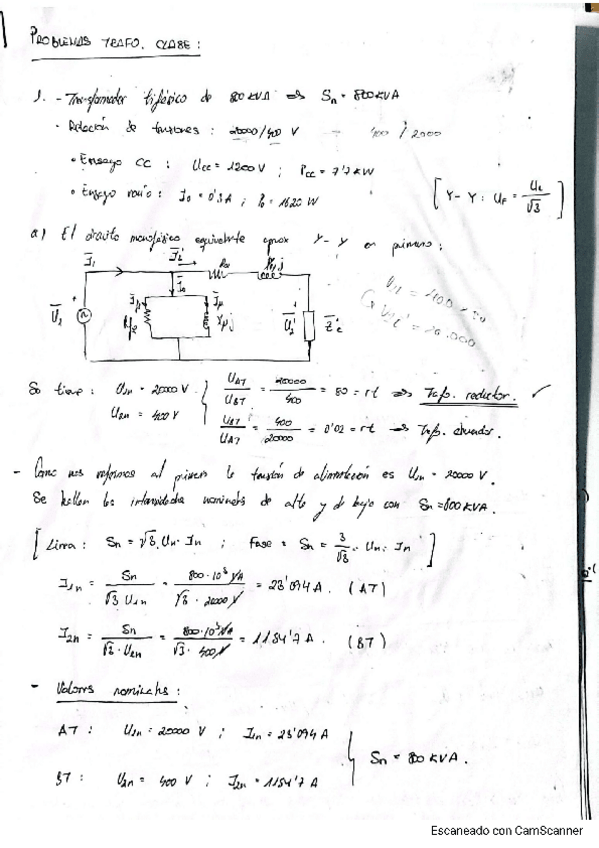 PROBLEMAS TRAFO. CLASE:
1. - Transformador trifásico de 800 KVA ⇒ Sn = 800 KVA
· Relación de tensiones: 20000/400 V 400 / 2000
· Ensayo CC: Ucc = 1200 V ; Pcc = 7'7 KW
· Ensayo vacío: I0 = 0'3 A ; P0 = 1620 W
[ Y-Y : UF = UL/√3 ]
a) El circuito monofásico equivalente aprox Y-Y en primario:
I1 I2' Rcc Xccj
I0
U1 Ife Rfe Iμ Xμj U2' Zc'
Se tiene: U1n = 20000 V UAT/UBT = 20000/400 = 50 = rt ⇒ Trafo. reductor. ✓
U2n = 400 V UBT/UAT = 400/20000 = 0'02 = rt ⇒ Trafo. elevador.
- Como nos referimos al primario la tensión de alimentación es U1n = 20000 V.
Se hallan las intensidades nominales de alta y de baja con Sn = 800 KVA.
[ Línea: Sn = √3. Un. In ; Fase: Sn = 3/√3 . Un. In ]
I1n = Sn/√3 U1n = 800·10³ VA/√3 · 20000 V = 23'094 A. (AT)
I2n = Sn/√3 · U2n = 800·10³ VA/√3 · 400 V = 1154'7 A. (BT)
- Valores nominales:
AT: U1n = 20000 V ; I1n = 23'094 A
Sn = 800 KVA.
BT: U2n = 400 V ; I2n = 1154'7 A
Escaneado con CamScanner